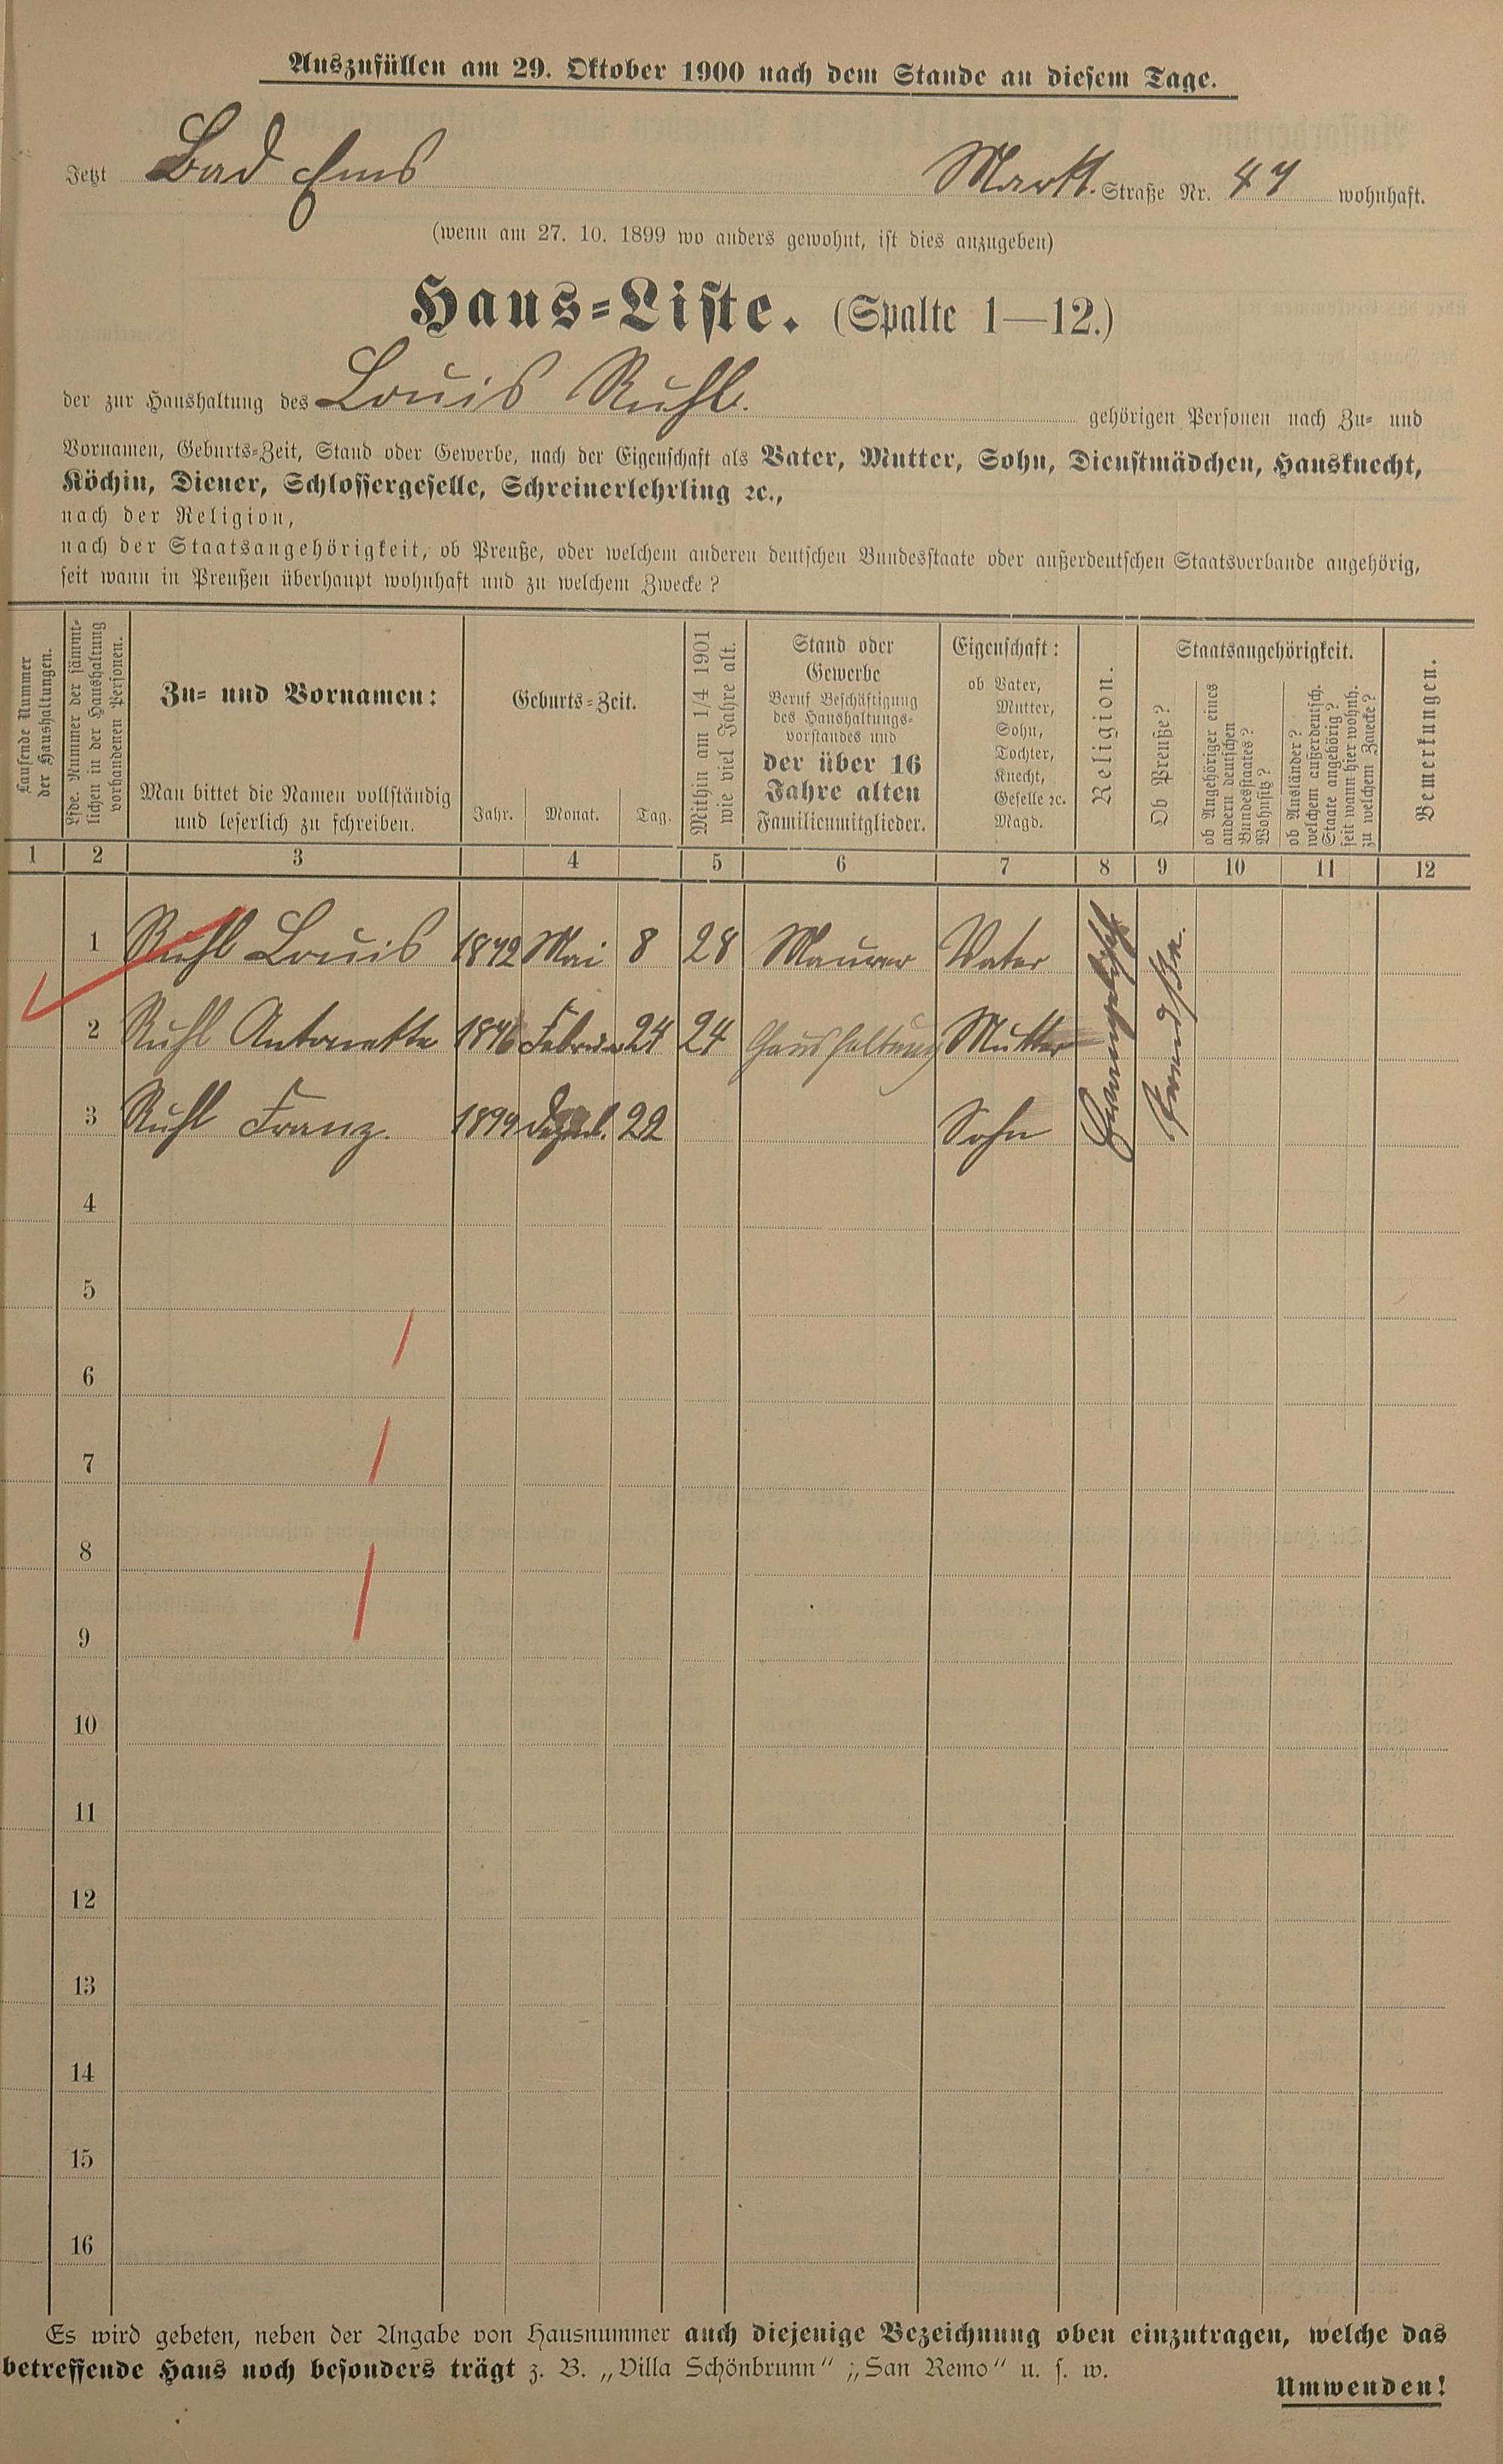 Auszufüllen am 29. Oktober 1900 nach dem Stande an diesem Tage.
Jetzt Bad Ems Markt. Straße Nr. 47 wohnhaft.
(wenn am 27. 10. 1899 wo anders gewohnt, ist dies anzugeben)
Haus-Liste. (Spalte 1—12.)
der zur Haushaltung des Louis Ruhl. gehörigen Personen nach Zu- und
Vornamen, Geburts-Zeit, Stand oder Gewerbe, nach der Eigenschaft als Vater, Mutter, Sohn, Dienstmädchen, Hausknecht,
Köchin, Diener, Schlossergeselle, Schreinerlehrling ꝛc.,
nach der Religion,
nach der Staatsangehörigkeit, ob Preuße, oder welchem anderen deutschen Bundesstaate oder außerdeutschen Staatsverbande angehörig,
seit wann in Preußen überhaupt wohnhaft und zu welchem Zwecke?
Laufende Nummer
der Haushaltungen.
Lfde. Nummer der sämmt-
lichen in der Haushaltung
vorhandenen Personen.
Zu- und Vornamen:
Man bittet die Namen vollständig
und leserlich zu schreiben.
Geburts-Zeit.
Jahr. Monat. Tag.
Mithin am 1/4 1901
wie viel Jahre alt.
Stand oder
Gewerbe
Beruf Beschäftigung
des Haushaltungs-
vorstandes und
der über 16
Jahre alten
Familienmitglieder.
Eigenschaft:
ob Vater,
Mutter,
Sohn,
Tochter,
Knecht,
Geselle ꝛc.
Magd.
Religion.
Staatsangehörigkeit.
Ob Preuße?
ob Angehöriger eines
andern deutschen
Bundesstaates?
Wohnsitz?
ob Ausländer?
welchem außerdeutsch.
Staate angehörig?
seit wann hier wohnh.
zu welchem Zwecke?
Bemerkungen.
1 2 3 4 5 6 7 8 9 10 11 12
1 Ruhl Louis 1872 Mai 8 28 Maurer Vater
2 Ruhl Antonette 1876 Februar 24 24 Haushaltung Mutter
3 Ruhl Franz. 1899 Dezbr. 22 Sohn
Evangelisch
4
5
6
7
8
9
10
11
12
13
14
15
16
Es wird gebeten, neben der Angabe von Hausnummer auch diejenige Bezeichnung oben einzutragen, welche das
betreffende Haus noch besonders trägt z. B. „Villa Schönbrunn“ ; „San Remo“ u. s. w.
Umwenden!